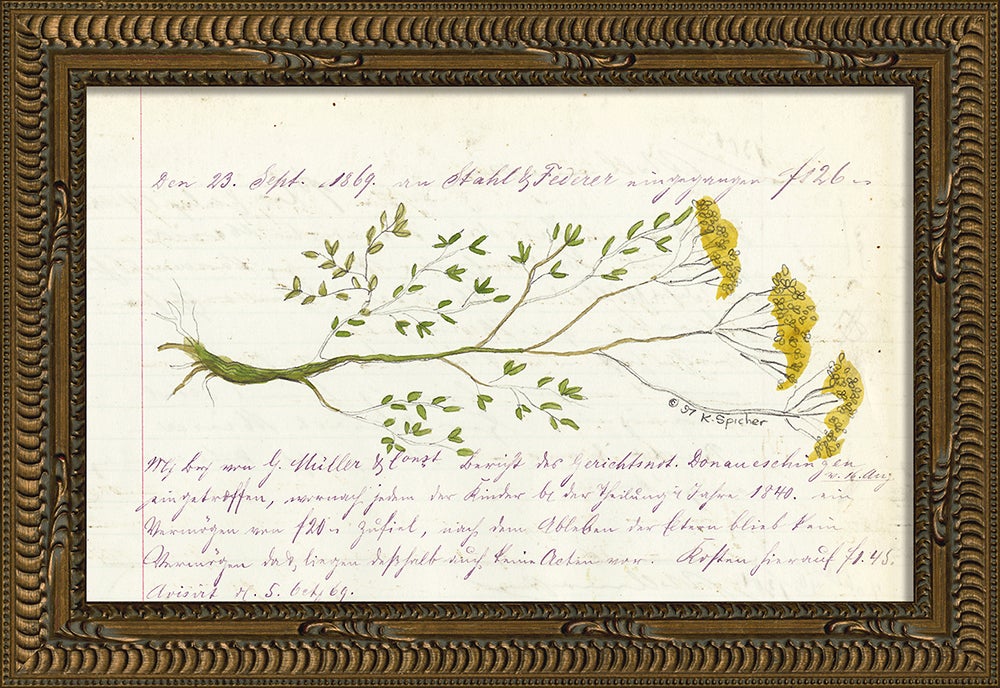 Den 23. Sept. 1869. an Stahl & Federer eingegangen f 126 =
© 97 K. Spicher
von G. Müller & Const Bericht des Gerichtsnot. Donaueschingen
v. 16. Aug
eingetroffen, wornach jedem der Kinder bei der Theilung Jahre 1840. ein
Vermögen von f 20 zufiel, nach dem Ableben der Eltern blieb kein
Vermögen da & liegen deßhalb auch keine Acten vor. Kosten hierauf f 1.45.
Avisirt d. 5. Oct. 69.